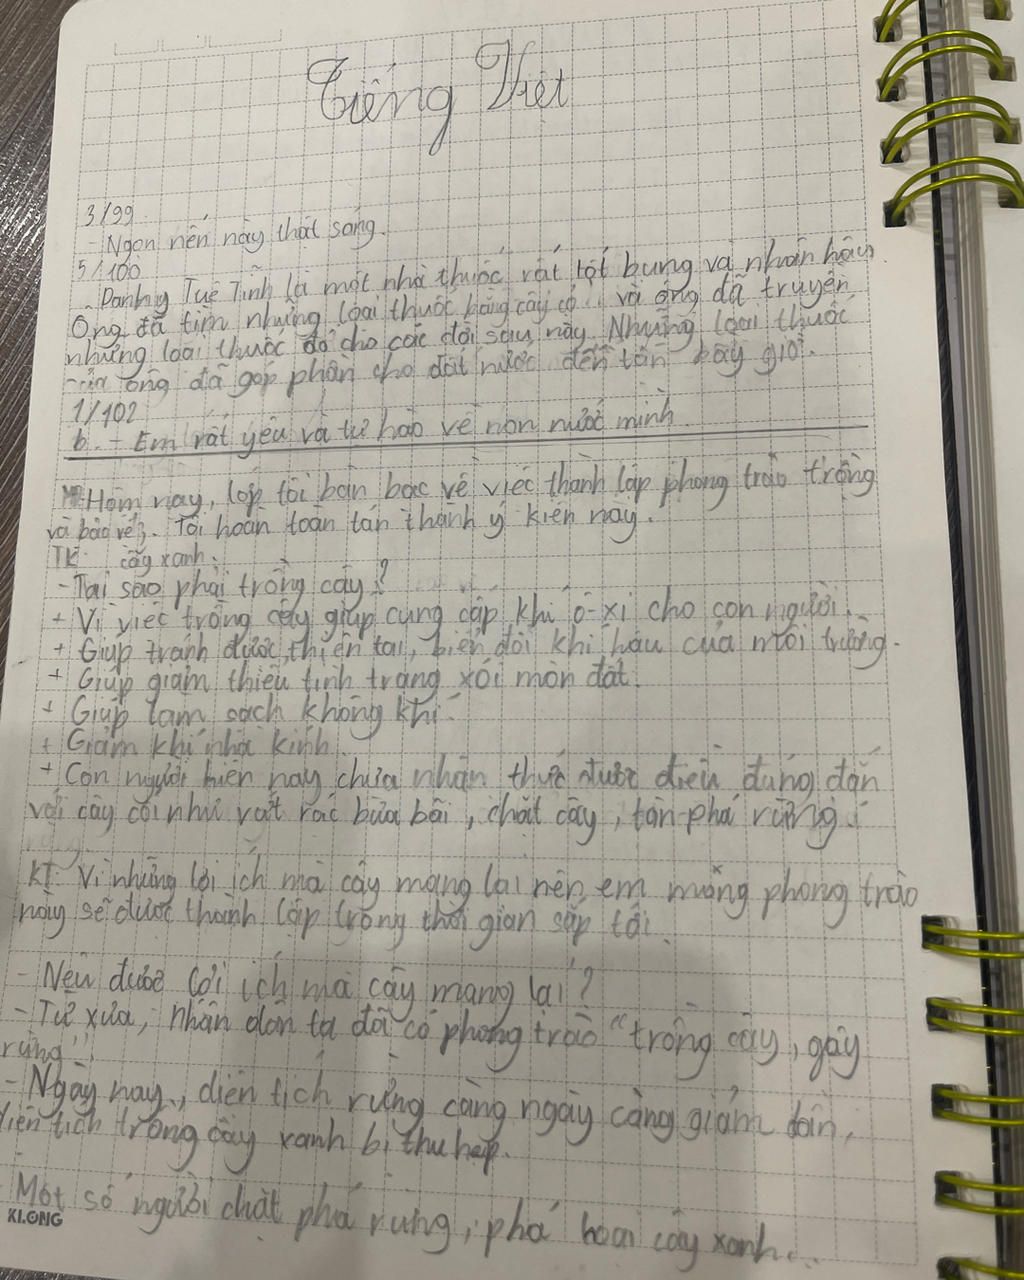 Tiếng Việt
3/99
- Ngọn nến này thật sáng.
5/100
- Danh y Tuệ Tĩnh là một nhà thuốc rất tốt bụng và nhân hậu.
Ông đã tìm những loại thuốc bằng cây cỏ và ông đã truyền
những loại thuốc đó cho các đời sau này. Những loại thuốc
của ông đã góp phần cho đất nước đến tận bây giờ.
1/102
b. - Em rất yêu và tự hào về non nước mình.
Hôm nay, lớp tôi bàn bạc về việc thành lập phong trào trồng
và bảo vệ. Tôi hoàn toàn tán thành ý kiến này.
TK: cây xanh.
- Tại sao phải trồng cây?
+ Vì việc trồng cây giúp cung cấp khí ô-xi cho con người.
+ Giúp tránh được thiên tai, biến đổi khí hậu của môi trường.
+ Giúp giảm thiểu tình trạng xói mòn đất.
+ Giúp làm sạch không khí.
+ Giảm khí nhà kính.
+ Con người hiện nay chưa nhận thức được điều đúng đắn
với cây cối như vứt rác bừa bãi, chặt cây, tàn phá rừng.
KT: Vì những lợi ích mà cây mang lại nên em mong phong trào
này sẽ được thành lập trong thời gian sắp tới.
- Nêu được lợi ích mà cây mang lại?
- Từ xưa, nhân dân ta đã có phong trào "trồng cây, gây
rừng"
- Ngày nay, diện tích rừng càng ngày càng giảm dần,
diện tích trồng cây xanh bị thu hẹp.
- Một số người chặt phá rừng, phá hoại cây xanh...
KLONG